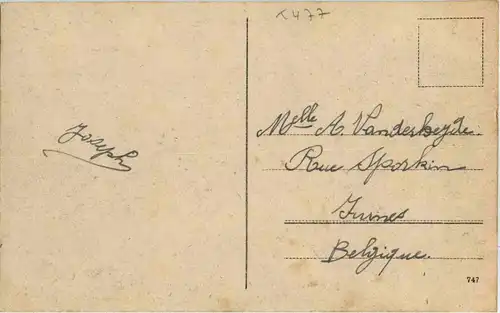 T 477
Joseph
Melle A. Vanderheyde.
Rue Sporkin
Furnes
Belgique.
747